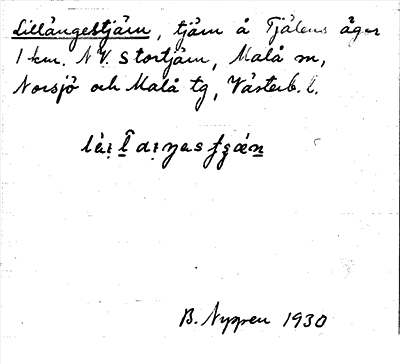 Lillängestjärn, tjärn å Tjälens ägor
1 km. N.V. Stortjärn, Malå sn,
Norsjö och Malå tg, Västerb. l.
B. Nyppen 1930